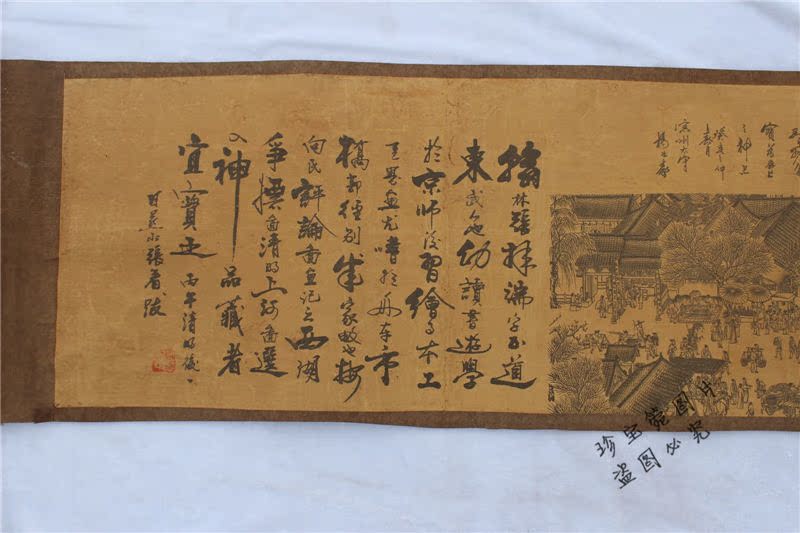 翰林張擇端字正道
東武人也幼讀書遊學
於京師後習繪事本工
其界畫尤嗜於舟車市
橋郭徑別成家數也按
向氏評論圖畫記云西湖
爭標圖清明上河圖選
入神品藏者
宜寶之丙午清明後一
日燕山張著跋
珍宝苑图片
盗图必究